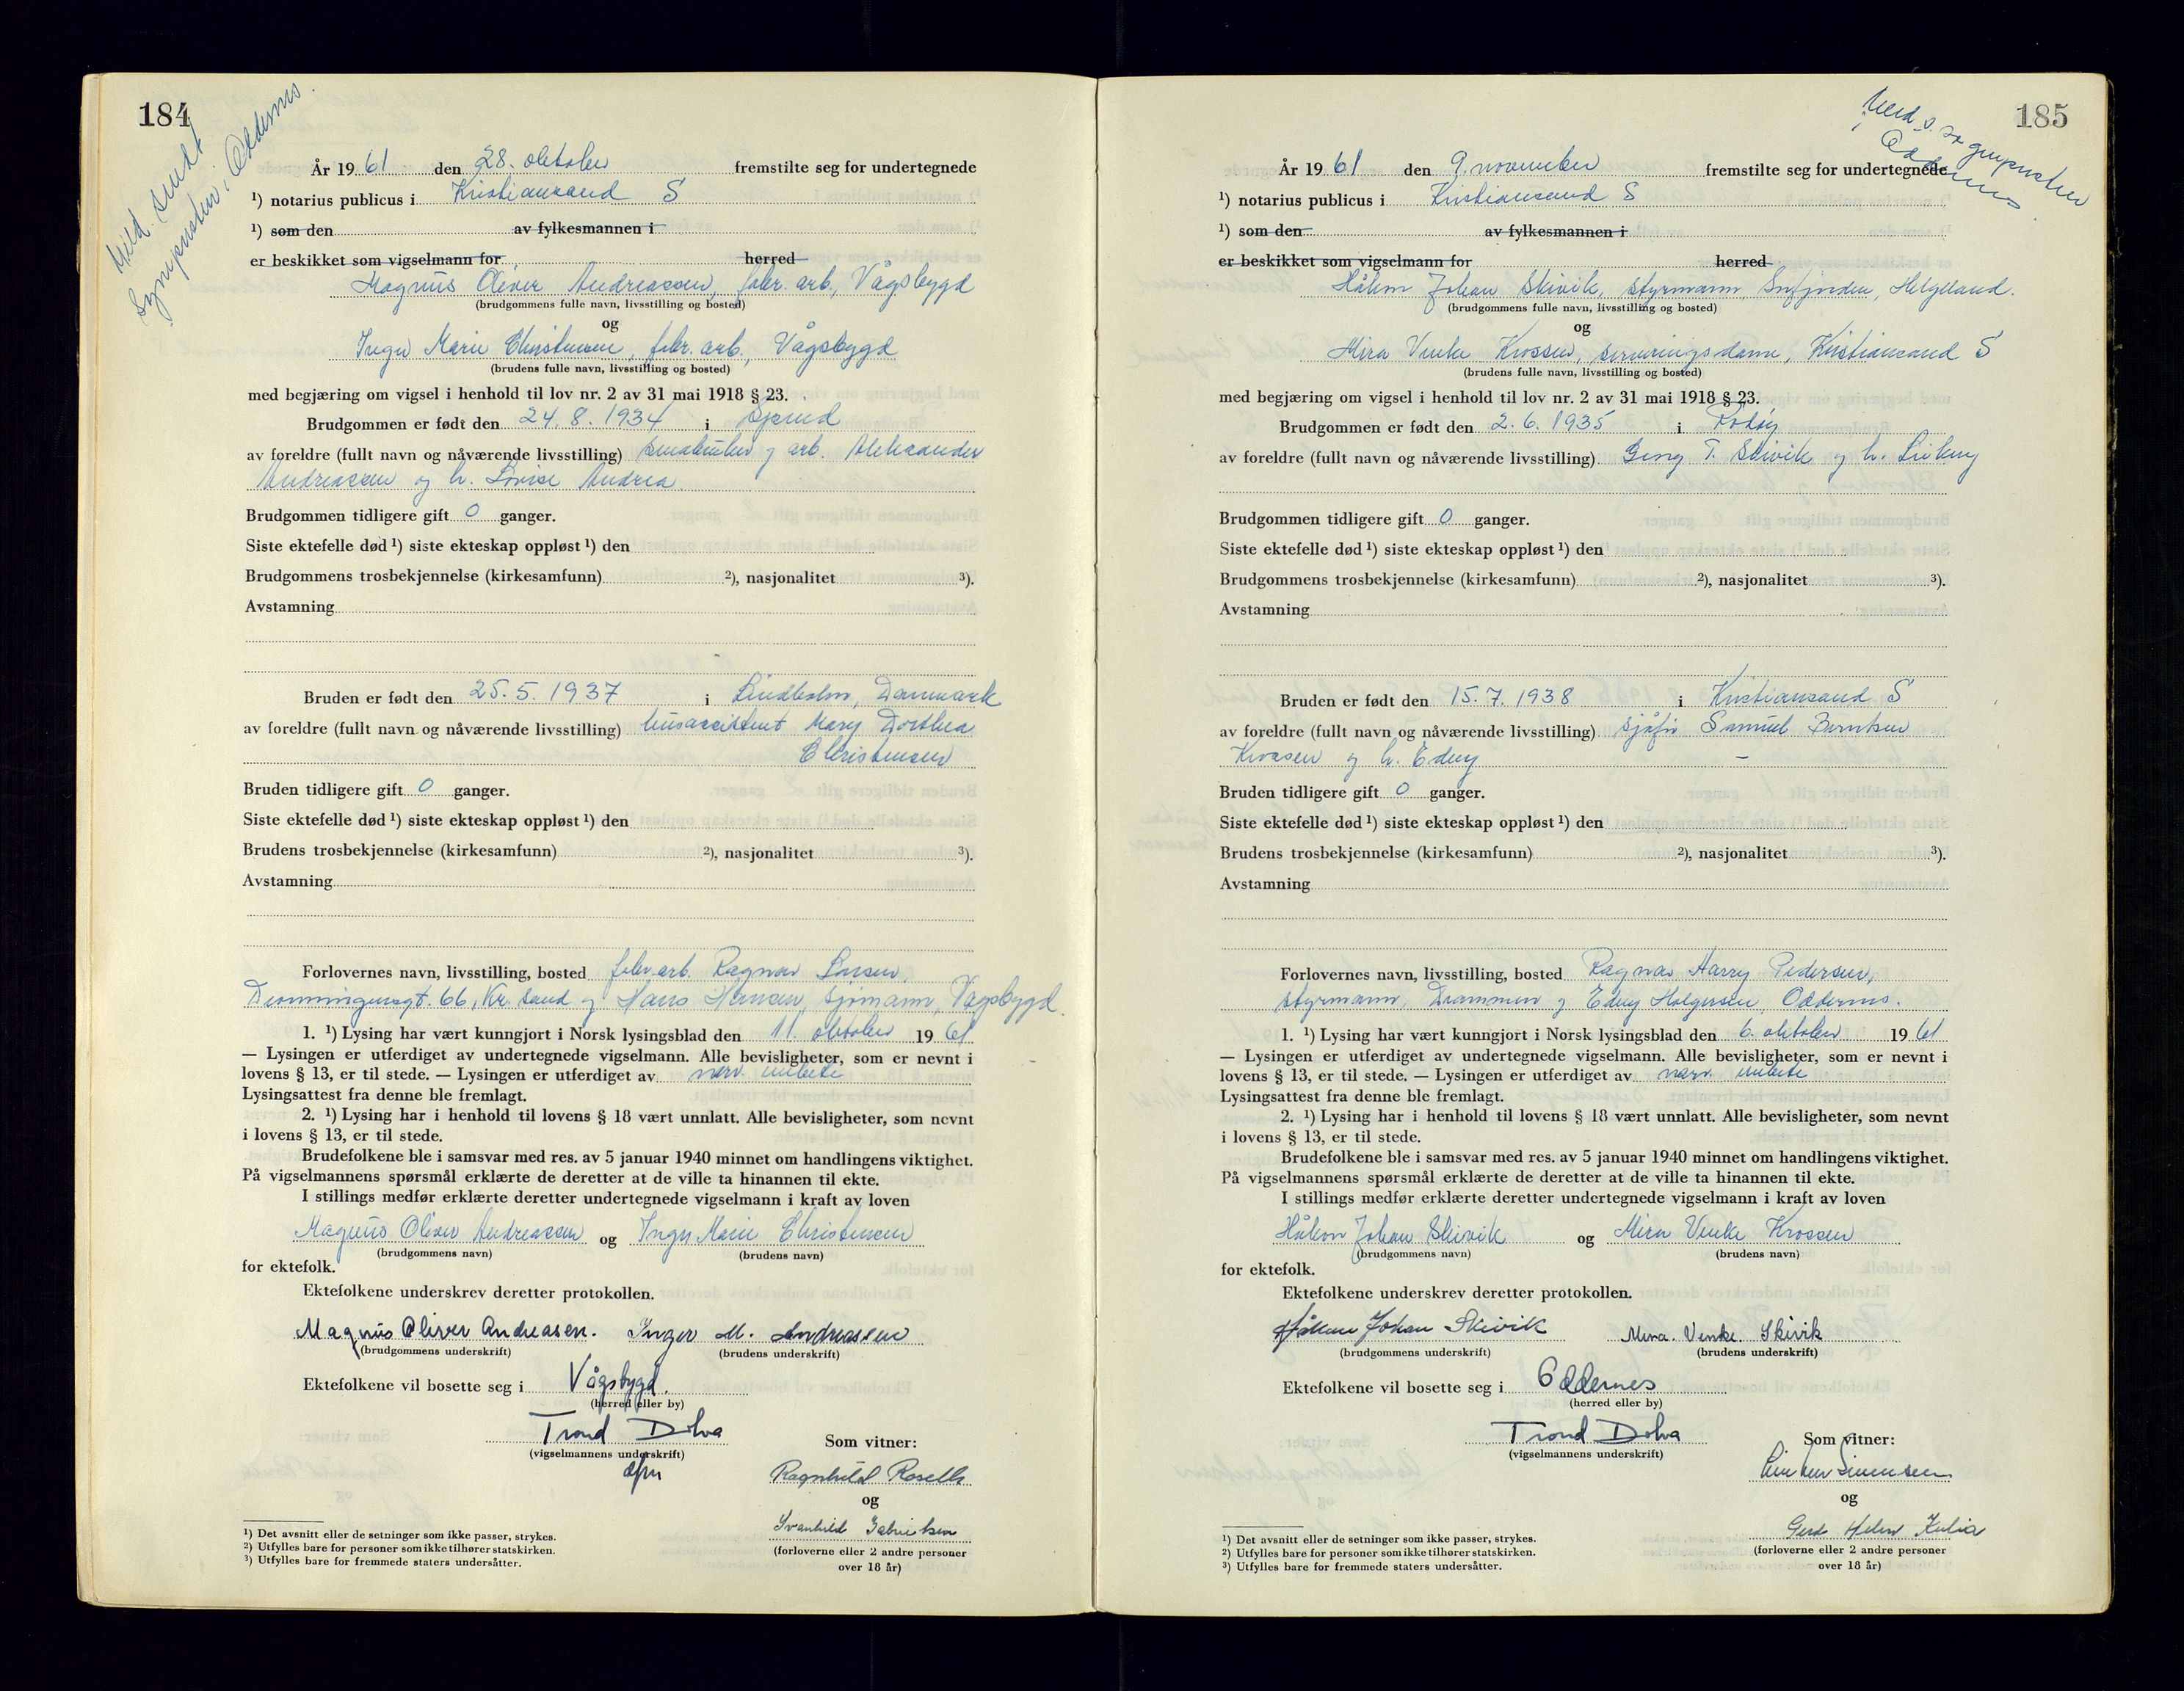 184
Meld. sendt
sognepresten i Oddernes.
År 1961 den 28. oktober fremstilte seg for undertegnede
¹) notarius publicus i Kristiansand S
¹) som den av fylkesmannen i
er beskikket som vigselmann for herred
Magnus Oliver Andreassen, fabr. arb., Vågsbygd
(brudgommens fulle navn, livsstilling og bosted)
og
Inger Marie Christensen, fabr. arb., Vågsbygd
(brudens fulle navn, livsstilling og bosted)
med begjæring om vigsel i henhold til lov nr. 2 av 31 mai 1918 § 23.
Brudgommen er født den 24. 8. 1934 i
av foreldre (fullt navn og nåværende livsstilling) småbruker og arb. Aleksander
Andreassen og h. Lovise Andrea
Brudgommen tidligere gift 0 ganger.
Siste ektefelle død ¹) siste ekteskap oppløst ¹) den
Brudgommens trosbekjennelse (kirkesamfunn) ²), nasjonalitet ³).
Avstamning
Bruden er født den 25. 5. 1937 i Lindholm, Danmark
av foreldre (fullt navn og nåværende livsstilling) husassistent Mary Dorthea
Christensen
Bruden tidligere gift 0 ganger.
Siste ektefelle død ¹) siste ekteskap oppløst ¹) den
Brudens trosbekjennelse (kirkesamfunn) ²), nasjonalitet ³).
Avstamning
Forlovernes navn, livsstilling, bosted fabr.arb. Ragnar Larsen,
Dronningensgt. 66, Kr. sand og Hans Hansen, sjømann, Vågsbygd.
1. ¹) Lysing har vært kunngjort i Norsk lysingsblad den 11. oktober 1961
— Lysingen er utferdiget av undertegnede vigselmann. Alle bevisligheter, som er nevnt i
lovens § 13, er til stede. — Lysingen er utferdiget av nærv. embete
Lysingsattest fra denne ble fremlagt.
2. ¹) Lysing har i henhold til lovens § 18 vært unnlatt. Alle bevisligheter, som nevnt
i lovens § 13, er til stede.
Brudefolkene ble i samsvar med res. av 5 januar 1940 minnet om handlingens viktighet.
På vigselmannens spørsmål erklærte de deretter at de ville ta hinannen til ekte.
I stillings medfør erklærte deretter undertegnede vigselmann i kraft av loven
Magnus Oliver Andreassen og Inger Marie Christensen
(brudgommens navn) (brudens navn)
for ektefolk.
Ektefolkene underskrev deretter protokollen.
Magnus Oliver Andreasen. Inger M. Andreassen
(brudgommens underskrift) (brudens underskrift)
Ektefolkene vil bosette seg i Vågsbygd.
(herred eller by)
Trond Dolva
(vigselmannens underskrift)
dfm
Som vitner:
Ragnhild Roselli
og
Svanhild Gabrielsen
(forloverne eller 2 andre personer
over 18 år)
¹) Det avsnitt eller de setninger som ikke passer, strykes.
²) Utfylles bare for personer som ikke tilhører statskirken.
³) Utfylles bare for fremmede staters undersåtter.
185
Meld. s. sognepresten
Oddernes
År 1961 den 9. november fremstilte seg for undertegnede
¹) notarius publicus i Kristiansand S
¹) som den av fylkesmannen i
er beskikket som vigselmann for herred
Håkon Johan Skivik, styrmann, Snfjorden, Helgeland.
(brudgommens fulle navn, livsstilling og bosted)
og
Mira Venke Krossen, serveringsdame, Kristiansand S
(brudens fulle navn, livsstilling og bosted)
med begjæring om vigsel i henhold til lov nr. 2 av 31 mai 1918 § 23.
Brudgommen er født den 2. 6. 1935 i Rødøy
av foreldre (fullt navn og nåværende livsstilling) Georg T. Skivik og h.
Brudgommen tidligere gift 0 ganger.
Siste ektefelle død ¹) siste ekteskap oppløst ¹) den
Brudgommens trosbekjennelse (kirkesamfunn) ²), nasjonalitet ³).
Avstamning
Bruden er født den 15. 7. 1938 i Kristiansand S
av foreldre (fullt navn og nåværende livsstilling) sjåfør Samuel Berntsen
Krossen og h. Edny —
Bruden tidligere gift 0 ganger.
Siste ektefelle død ¹) siste ekteskap oppløst ¹) den
Brudens trosbekjennelse (kirkesamfunn) ²), nasjonalitet ³).
Avstamning
Forlovernes navn, livsstilling, bosted Ragnar Harry Pedersen,
styrmann, Drammen og Edny Holgersen, Oddernes.
1. ¹) Lysing har vært kunngjort i Norsk lysingsblad den 6. oktober 1961
— Lysingen er utferdiget av undertegnede vigselmann. Alle bevisligheter, som er nevnt i
lovens § 13, er til stede. — Lysingen er utferdiget av nærv. embete
Lysingsattest fra denne ble fremlagt.
2. ¹) Lysing har i henhold til lovens § 18 vært unnlatt. Alle bevisligheter, som nevnt
i lovens § 13, er til stede.
Brudefolkene ble i samsvar med res. av 5 januar 1940 minnet om handlingens viktighet.
På vigselmannens spørsmål erklærte de deretter at de ville ta hinannen til ekte.
I stillings medfør erklærte deretter undertegnede vigselmann i kraft av loven
Håkon Johan Skivik og Mira Venke Krossen
(brudgommens navn) (brudens navn)
for ektefolk.
Ektefolkene underskrev deretter protokollen.
Håkon Johan Skivik Mira. Venke. Skivik
(brudgommens underskrift) (brudens underskrift)
Ektefolkene vil bosette seg i Oddernes
(herred eller by)
Trond Dolva
(vigselmannens underskrift)
Som vitner:
Simensen
og
Gerd Helen Kulia
(forloverne eller 2 andre personer
over 18 år)
¹) Det avsnitt eller de setninger som ikke passer, strykes.
²) Utfylles bare for personer som ikke tilhører statskirken.
³) Utfylles bare for fremmede staters undersåtter.